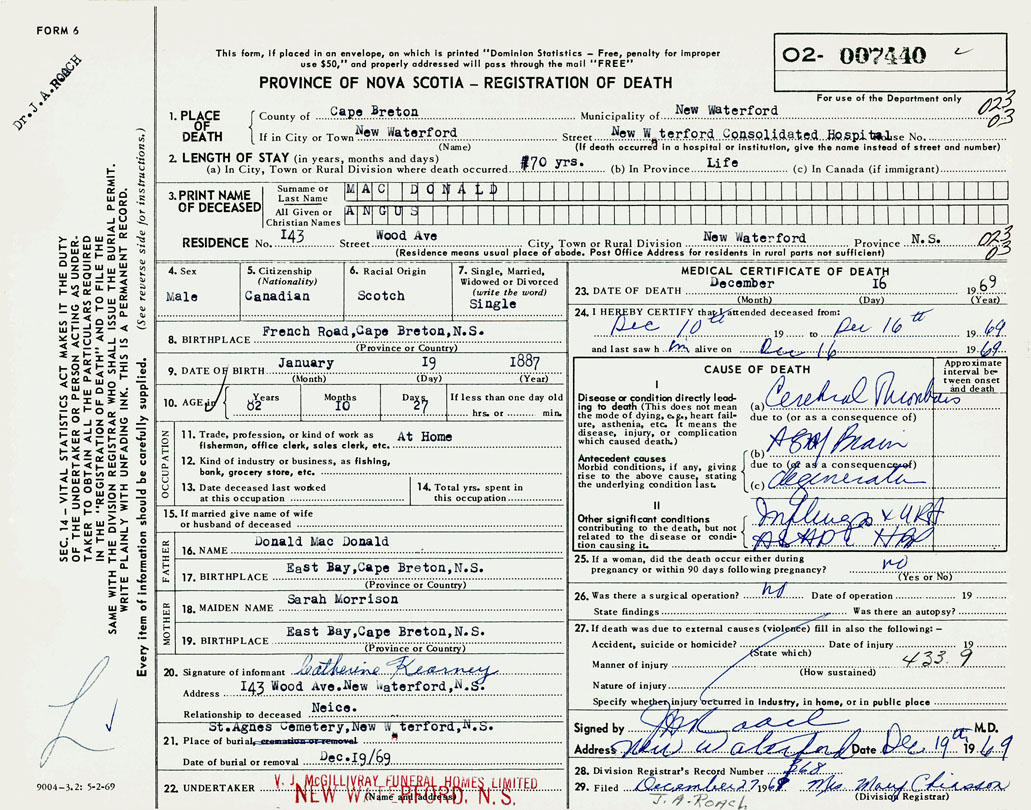 FORM 6
Dr. J.A. ROACH
This form, if placed in an envelope, on which is printed "Dominion Statistics – Free, penalty for improper
use $50," and properly addressed will pass through the mail "FREE"
PROVINCE OF NOVA SCOTIA – REGISTRATION OF DEATH
02- 007440
For use of the Department only
023
03
1. PLACE OF DEATH
County of Cape Breton Municipality of New Waterford
If in City or Town New Waterford Street New W terford Consolidated Hospital use No.
(Name) (If death occurred in a hospital or institution, give the name instead of street and number)
2. LENGTH OF STAY (in years, months and days)
(a) In City, Town or Rural Division where death occurred 70 yrs. (b) In Province Life (c) In Canada (if immigrant)
3. PRINT NAME OF DECEASED
Surname or Last Name MAC DONALD
All Given or Christian Names ANGUS
RESIDENCE No. 143 Street Wood Ave City, Town or Rural Division New Waterford Province N.S.
023
03
(Residence means usual place of abode. Post Office Address for residents in rural parts not sufficient)
4. Sex
Male
5. Citizenship
(Nationality)
Canadian
6. Racial Origin
Scotch
7. Single, Married,
Widowed or Divorced
(write the word)
Single
8. BIRTHPLACE French Road, Cape Breton, N.S.
(Province or Country)
9. DATE OF BIRTH January 19 1887
(Month) (Day) (Year)
10. AGE in Years Months Days If less than one day old
82 10 27 hrs. or min.
OCCUPATION
11. Trade, profession, or kind of work as At Home
fisherman, office clerk, sales clerk, etc.
12. Kind of industry or business, as fishing,
bank, grocery store, etc.
13. Date deceased last worked
at this occupation
14. Total yrs. spent in
this occupation
15. If married give name of wife
or husband of deceased
FATHER
16. NAME Donald Mac Donald
17. BIRTHPLACE East Bay, Cape Breton, N.S.
(Province or Country)
MOTHER
18. MAIDEN NAME Sarah Morrison
19. BIRTHPLACE East Bay, Cape Breton, N.S.
(Province or Country)
20. Signature of informant Catherine Kearney
Address 143 Wood Ave. New Waterford, N.S.
Relationship to deceased Neice.
St. Agnes Cemetery, New W terford, N.S.
21. Place of burial, cremation or removal
Date of burial or removal Dec. 19/69
22. UNDERTAKER V. J. McGILLIVRAY FUNERAL HOMES LIMITED
NEW WATERFORD, N. S.
(Name and address)
MEDICAL CERTIFICATE OF DEATH
23. DATE OF DEATH December 16 1969
(Month) (Day) (Year)
24. I HEREBY CERTIFY that I attended deceased from:
Dec 10th 19 to Dec 16th 1969
and last saw him alive on Dec 16 1969
CAUSE OF DEATH
Approximate interval between onset and death
I
Disease or condition directly leading to death (This does not mean the mode of dying, e.g., heart failure, asthenia, etc. It means the disease, injury, or complication which caused death.)
(a) Cerebral Thrombosis
due to (or as a consequence of)
Antecedent causes
Morbid conditions, if any, giving rise to the above cause, stating the underlying condition last.
(b) Brain
due to (or as a consequence of)
(c)
II
Other significant conditions contributing to the death, but not related to the disease or condition causing it.
25. If a woman, did the death occur either during
pregnancy or within 90 days following pregnancy? no
(Yes or No)
26. Was there a surgical operation? no Date of operation 19
State findings Was there an autopsy?
27. If death was due to external causes (violence) fill in also the following: –
Accident, suicide or homicide? Date of injury 19
(State which)
Manner of injury 433.9
(How sustained)
Nature of injury
Specify whether injury occurred in Industry, in home, or in public place
Signed by J A Roach M.D.
Address New Waterford Date Dec 19th 1969
28. Division Registrar's Record Number 368
29. Filed December 27 1969 Mrs Mary Chiasson
(Division Registrar)
J.A. ROACH
SEC. 14 – VITAL STATISTICS ACT MAKES IT THE DUTY
OF THE UNDERTAKER OR PERSON ACTING AS UNDERTAKER
TO OBTAIN ALL THE PARTICULARS REQUIRED
IN THE "REGISTRATION OF DEATH" AND TO FILE THE
SAME WITH THE DIVISION REGISTRAR WHO SHALL ISSUE THE BURIAL PERMIT.
WRITE PLAINLY WITH UNFADING INK. THIS IS A PERMANENT RECORD.
Every item of information should be carefully supplied. (See reverse side for instructions.)
9004-3.2: 5-2-69